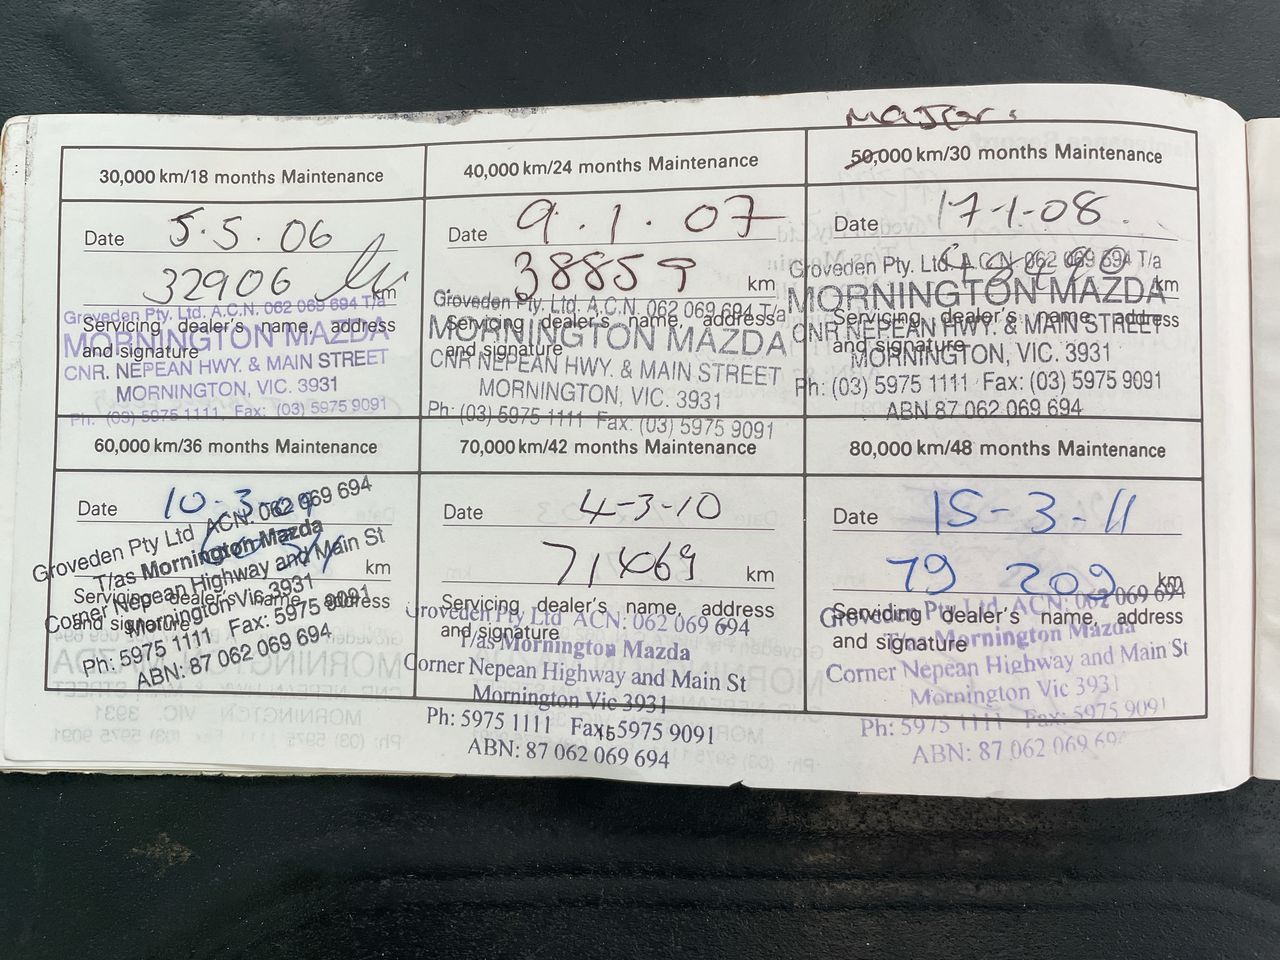 MAJOR:
30,000 km/18 months Maintenance
Date 5.5.06
32906 km
Groveden Pty. Ltd. A.C.N. 062 069 694 T/a
Servicing dealer's name, address
MORNINGTON MAZDA
and signature
CNR. NEPEAN HWY. & MAIN STREET
MORNINGTON, VIC. 3931
Ph: (03) 5975 1111 Fax: (03) 5975 9091
40,000 km/24 months Maintenance
Date 9.1.07
38859 km
Groveden Pty. Ltd. A.C.N. 062 069 694 T/a
Servicing dealer's name, address
MORNINGTON MAZDA
and signature
CNR NEPEAN HWY. & MAIN STREET
MORNINGTON, VIC. 3931
Ph: (03) 5975 1111 Fax: (03) 5975 9091
50,000 km/30 months Maintenance
Date 17-1-08.
km
Groveden Pty. Ltd. A.C.N. 062 069 694 T/a
MORNINGTON MAZDA
Servicing dealer's name, address
CNR NEPEAN HWY. & MAIN STREET
and signature
MORNINGTON, VIC. 3931
Ph: (03) 5975 1111 Fax: (03) 5975 9091
ABN 87 062 069 694
60,000 km/36 months Maintenance
Date 10-3-09
km
Groveden Pty Ltd ACN: 062 069 694
T/as Mornington Mazda
Corner Nepean Highway and Main St
Servicing dealer's name, address
and signature
Mornington Vic 3931
Ph: 5975 1111 Fax: 5975 9091
ABN: 87 062 069 694
70,000 km/42 months Maintenance
Date 4-3-10
71069 km
Servicing dealer's name, address
Groveden Pty Ltd ACN: 062 069 694
and signature
T/as Mornington Mazda
Corner Nepean Highway and Main St
Mornington Vic 3931
Ph: 5975 1111 Fax: 5975 9091
ABN: 87 062 069 694
80,000 km/48 months Maintenance
Date 15-3-11
79 209 km
Groveden Pty Ltd ACN: 062 069 694
Servicing dealer's name, address
T/as Mornington Mazda
and signature
Corner Nepean Highway and Main St
Mornington Vic 3931
Ph: 5975 1111 Fax: 5975 9091
ABN: 87 062 069 694
15